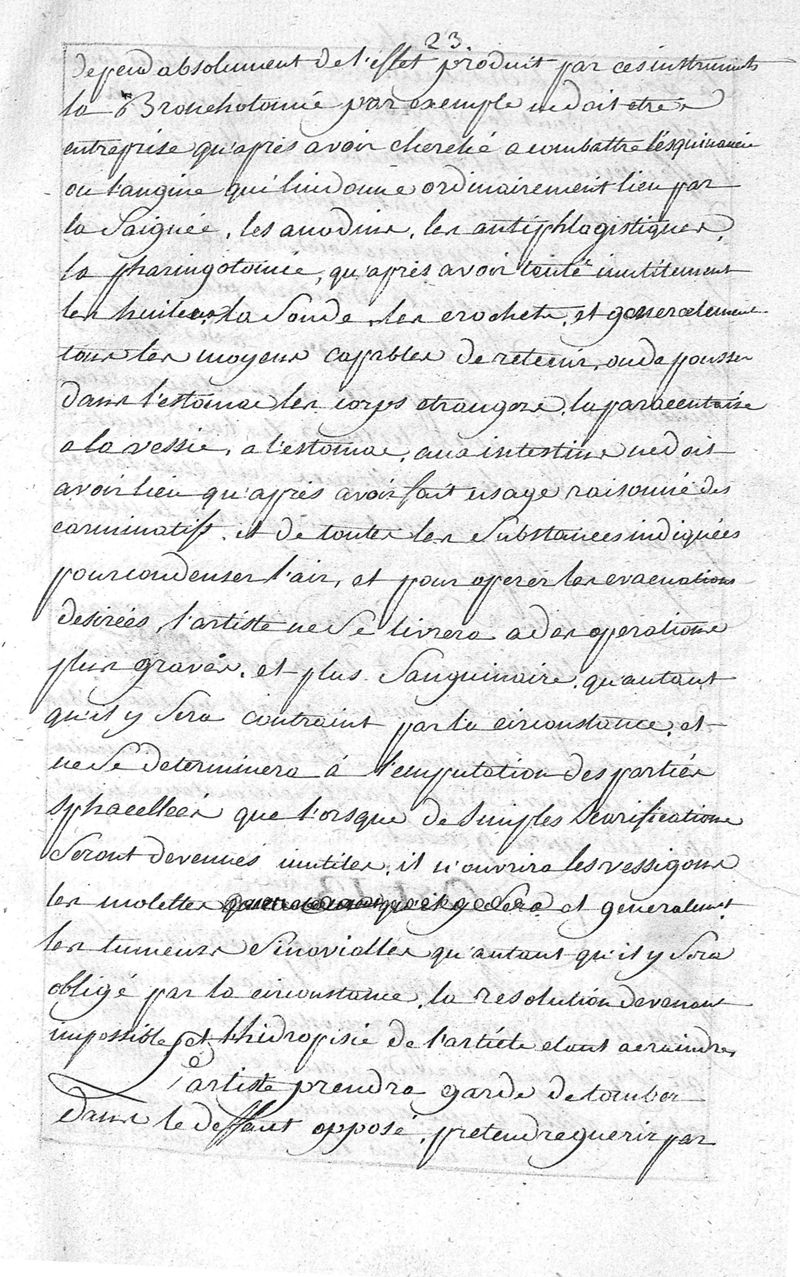 23.
depend absolument de l'effet produit par ces instruments
la Bronchotomie par exemple ne doit etre
entreprise qu'après avoir cherché a combattre l'esquinancie
ou l'angine qui lui donne ordinairement lieu par
la Saignée, les anodins, les antiphlogistiques,
la pharingotomie, qu'après avoir tenté inutilement
les huileux, la Sonde, les crochets, et generalement
tous les moyens capables de retenir, ou de pousser
dans l'estomac les corps etrangers, la paracentaise
a la vessie, a l'estomac, aux intestins ne doit
avoir lieu qu'après avoir fait usage raisonné des
carminatifs, et de toutes les Substances indiquées
pour condenser l'air, et pour operer les evacuations
desirées, l'artiste ne Se livrera a des operations
plus graves, et plus Sanguinaire, qu'autant
qu'il y Sera contraint par la circonstance, et
ne Se determinera à l'emputation des parties
Sphacellées que lorsque de Simples Scarifications
Seront devenues inutiles, il n'ouvrira les vessigons
les molettes et generalemt
les tumeurs Sinovialles qu'autant qu'il y Sera
obligé par la circonstance, la resolution devenant
impossible, et l'hidropisie de l'article etant a craindre,
l'artiste prendra garde de tomber
dans le deffaut opposé, pretendre guerir par